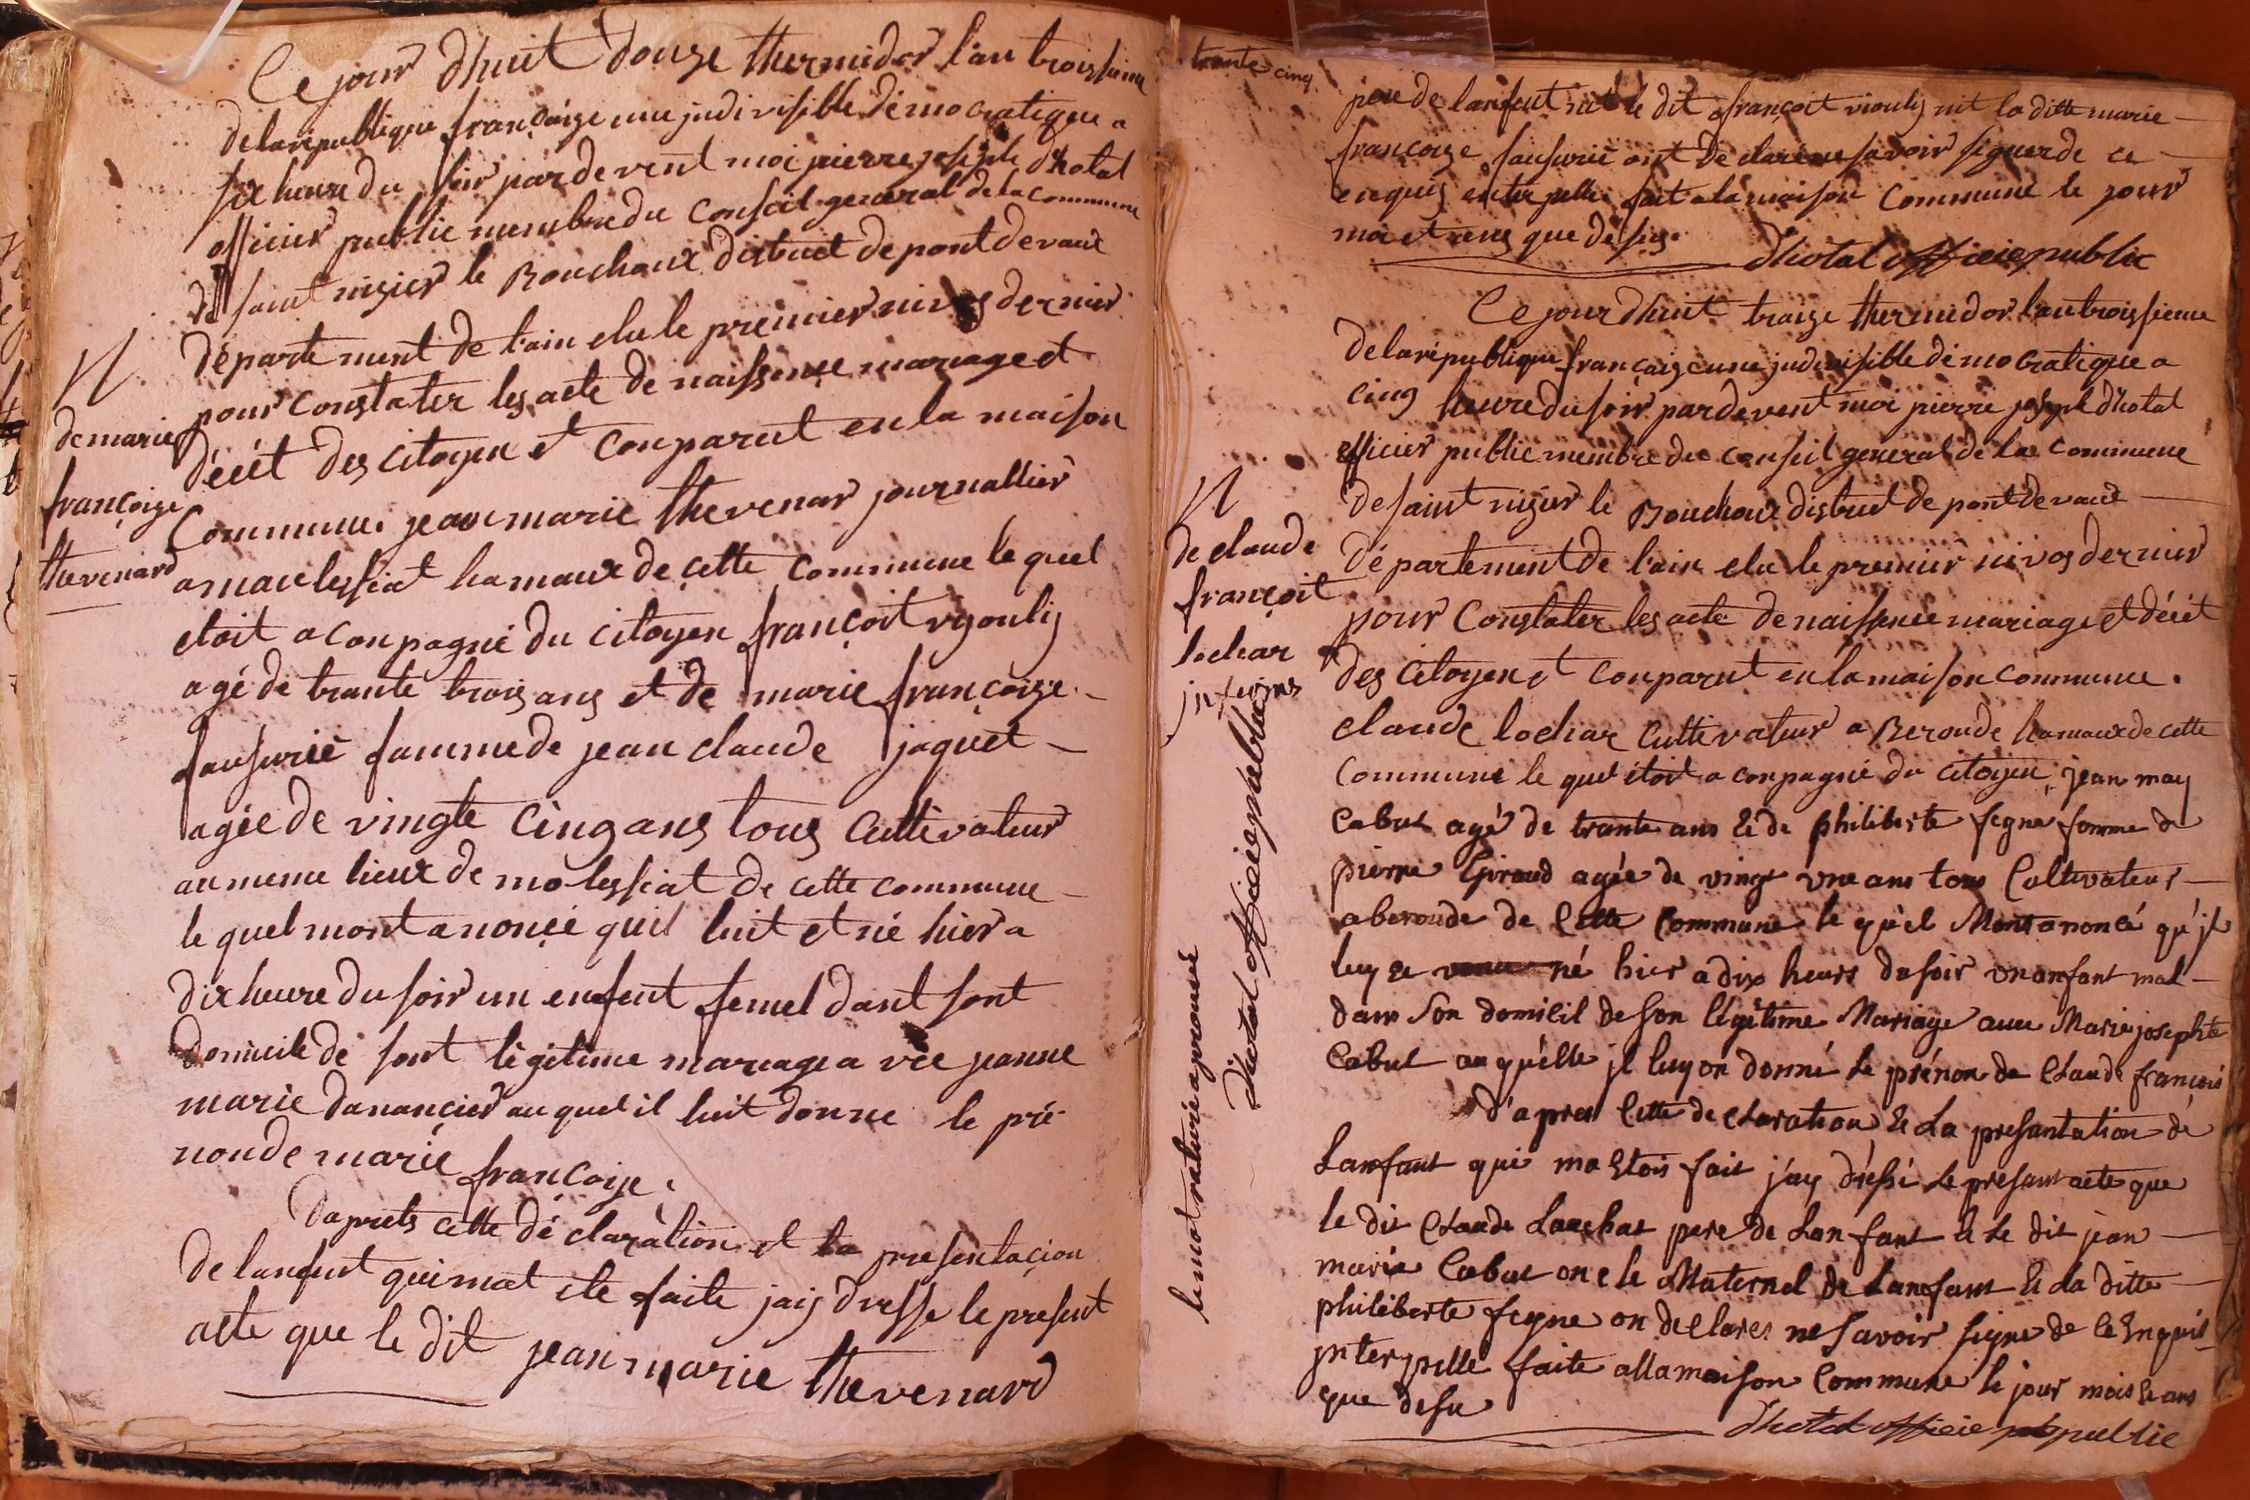 Ce jour dhuit douze thermidor l'an troissieme
de la republique françaize une judivisible démocratique a
six heure du soir par devent moi pierre joseph d'hotal
officier public membre du conseil general de la commune
de saint nizier le Bouchoux district de pont de vaux
département de l'ain elu le premier nivos dernier
pour constater les acte de naissence mariage et
décét des citoyen et conparut en la maison
N
de marie
françoize
thevenard
commune. jean marie thevenar journallier
a maulessiat hamaux de cette commune le quel
etoit aconpagné du citoyen françoit vyouly
agé de trante trois ans et de marie françoize
sausurié famme de jean claude jaquet
agée de vingte cinq ans tous cultivateur
au meme lieux de molessiat de cette commune
le quel mont anoncé quil luit et né hier a
dix heure du soir un enfent femel dant sont
domicile de sont légitime mariage a vée jeanne
marie danancier au quel il luit donne le pré
non de marié françoize.
daprets cette déclaration et la presentacion
de lanfent qui mat ete faite jaiy dresse le present
acte que le dit jean marie thevenard
trante cinq
pere de lanfent nit le dit françoit viouly nit la ditte marie
françoize sausurié ont declare ne savoir signer de ce
enquis enterpelle fait a la maison commune le jour
moi et ans que desus.
dhotal officie public
Ce jour dhuit traize thermidor l'an troissieme
de la republique françaiz une judivisible démocratique a
cinq heure du soir par devent moi pierre joseph dhotal
officier public membre du conseil general de la commune
de saint nizier le Bouchoux district de pont de vaux
département de l'ain elu le premier nivos dernier
pour constater les acte de naissence mariage et décét
des citoyen et conparut en la maison commune.
N
de claude
françoit
lochar
claude lochar cultivateur a Beroude hamaux de cette
commune le quel étoit aconpagné du citoyen jean mary
Cabut agé de trante ans & de philiberte fegne fomme de
pierre Giroud agée de vingt vne ans tous Cultivateur
a beroude de Cette Commune le quel Mont anoncé qu'jl
luy et né hier a dix heurs du soir vn anfant mal
dans Son domicil de Son légitime Mariage avec Marie josephte
Cabut au quélle jl luy on donné le prénon de Claude françois
d'apres Cette declaration & La presantation de
Lanfant qui ma Etois fait j'ay dréssé le presant acte que
le dit Claude Lauchat pere de Lanfant & Le dit jean
marie Cabut oncle Maternel de Lanfant & La ditte
philiberte fegne on declares ne Savoir signe de Ce Enquit
jnterpelle faite alla maison Commune le jour mois & ans
que desu
dhotal officie public
le mot raturé aprouvé
dhotal officie public